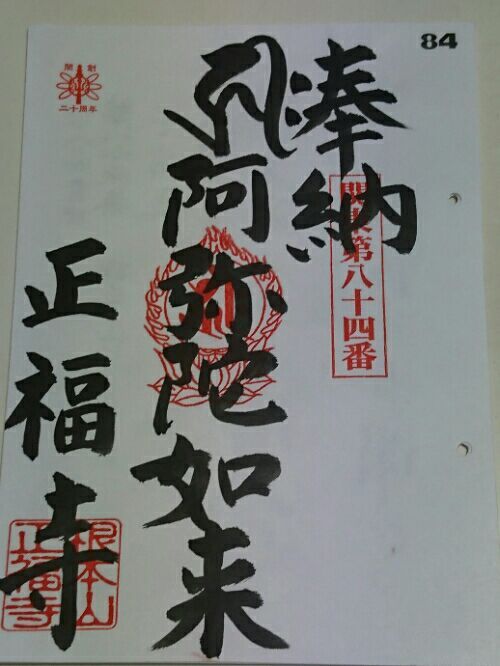 84
奉納
関東第八十四番
阿弥陀如来
開創
二十周年
正福寺
根本山
正福寺